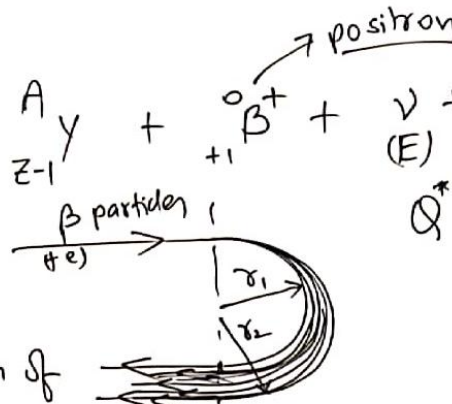 positron
A
Z-1 Y + 0 +1 β+ + ν +
(E)
Q*
β particles
(+e)
r1
r2
n of